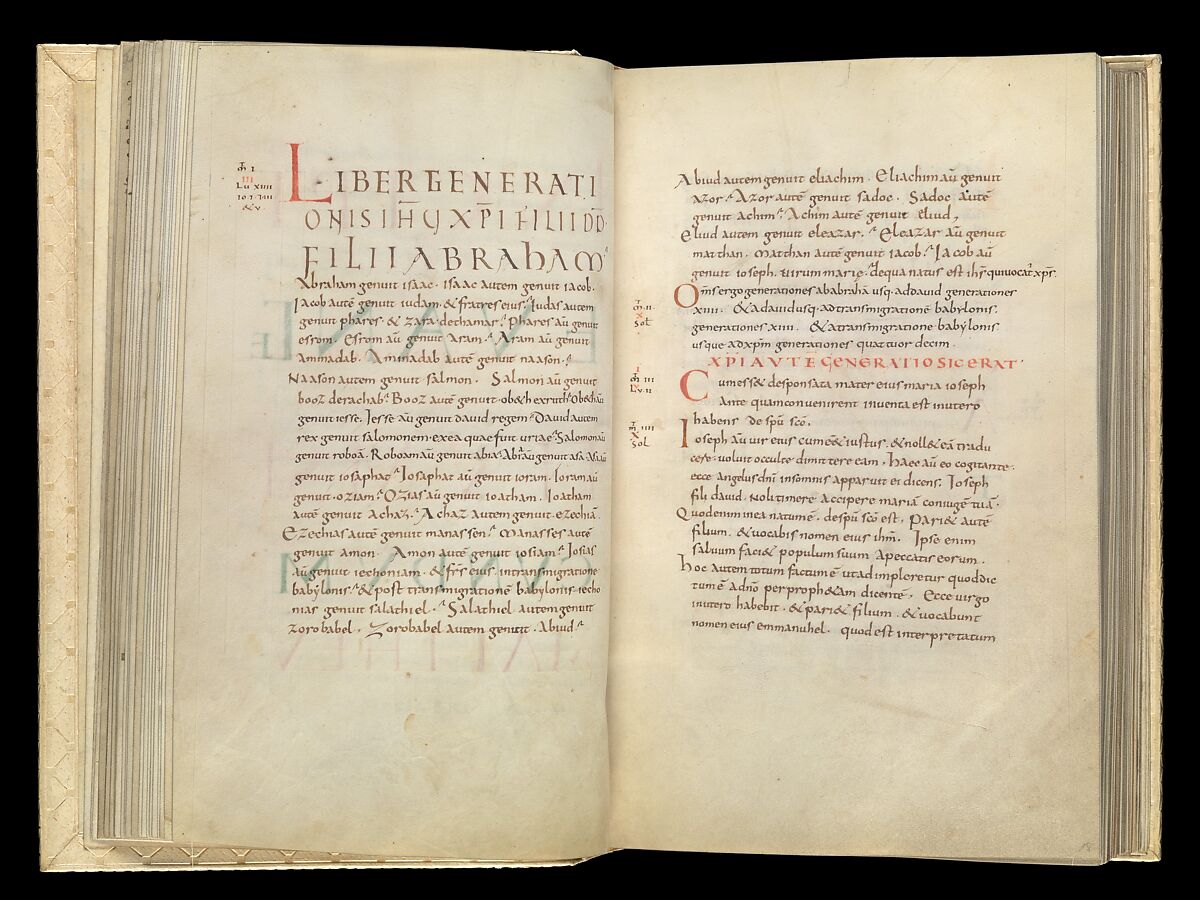 m̄ I
III
Lu XIIII
Io I IIII
& V
LIBER GENERATI
ONIS IH̄Ū XP̄I FILII DD̄
FILII ABRAHAM
Abraham genuit isaac. isaac autem genuit iacob.
Iacob autē genuit iudam. & fratres eius. Iudas autem
genuit phares. & zara. dethamar. Phares aū genuit
esrom. Esrom aū genuit aram. Aram aū genuit
aminadab. Aminadab autē genuit naason.
Naason autem genuit salmon. Salmon aū genuit
booz derachab. Booz autē genuit. ob&h exruth. Ob&h aū
genuit iesse. Iesse aū genuit david regem. David autem
rex genuit salomonem. exea quae fuit uriae. Salomon aū
genuit roboā. Roboam aū genuit abia. Abia aū genuit asā. Asa aū
genuit iosaphat. Iosaphat aū genuit ioram. Ioram aū
genuit. oziam. Ozias aū genuit ioatham. Ioatham
autē genuit achaz. Achaz autem genuit. ezechiā.
Ezechias autē genuit manassen. Manasses autē
genuit amon. Amon autē genuit iosiam. Iosias
aū genuit iechoniam. & fr̄s eius. intransmigratione
babylonis. & post transmigrationē babylonis iecho
nias genuit salathiel. Salathiel autem genuit
zorobabel. Zorobabel autem genuit. Abiud.
Abiud autem genuit eliachim. Eliachim aū genuit
azor. Azor autē genuit sadoc. Sadoc autē
genuit achim. Achim autē genuit eliud,
Eliud autem genuit eleazar. Eleazar aū genuit
matthan. Matthan autē genuit iacob. Iacob aū
genuit ioseph. uirum marie. dequa natus est ih̄s qui uocat xp̄s.
m̄ II
X
Sol
Om̄s ergo generationes ababrahā usq. addavid generationes
XIIII. & adavid usq. adtransmigrationē babylonis.
generationes XIIII. & atransmigratione babylonis
usque adxp̄m generationes quattuor decim.
XP̄I AUTĒ GENERATIO SIC ERAT.
I
m̄ III
Lu II
Cum ess& desponsata mater eius maria ioseph
ante quam convenirent inventa est inutero
habens de sp̄u sc̄o.
m̄ IIII
X
Sol
Ioseph aū vir eius cum eē& iustus. & noll& eā tradu
cere. voluit occulte dimittere eam. Haec aū eo cogitante.
ecce angelus dn̄i insomnis apparuit ei dicens. Ioseph
fili david. Noli timere accipere mariā coniugē tuā.
Quod enim inea natum ē. desp̄u sc̄o est. Pari& autē
filium. & vocabis nomen eius ih̄m. Ipse enim
salvum faci& populum suum apeccatis eorum.
Hoc autem totum factum ē ut adimpleretur quod dic
tum ē adn̄o per proph&am dicentē. Ecce virgo
inutero habebit. & pari& filium. & vocabunt
nomen eius emmanuhel. quod est interpretatum